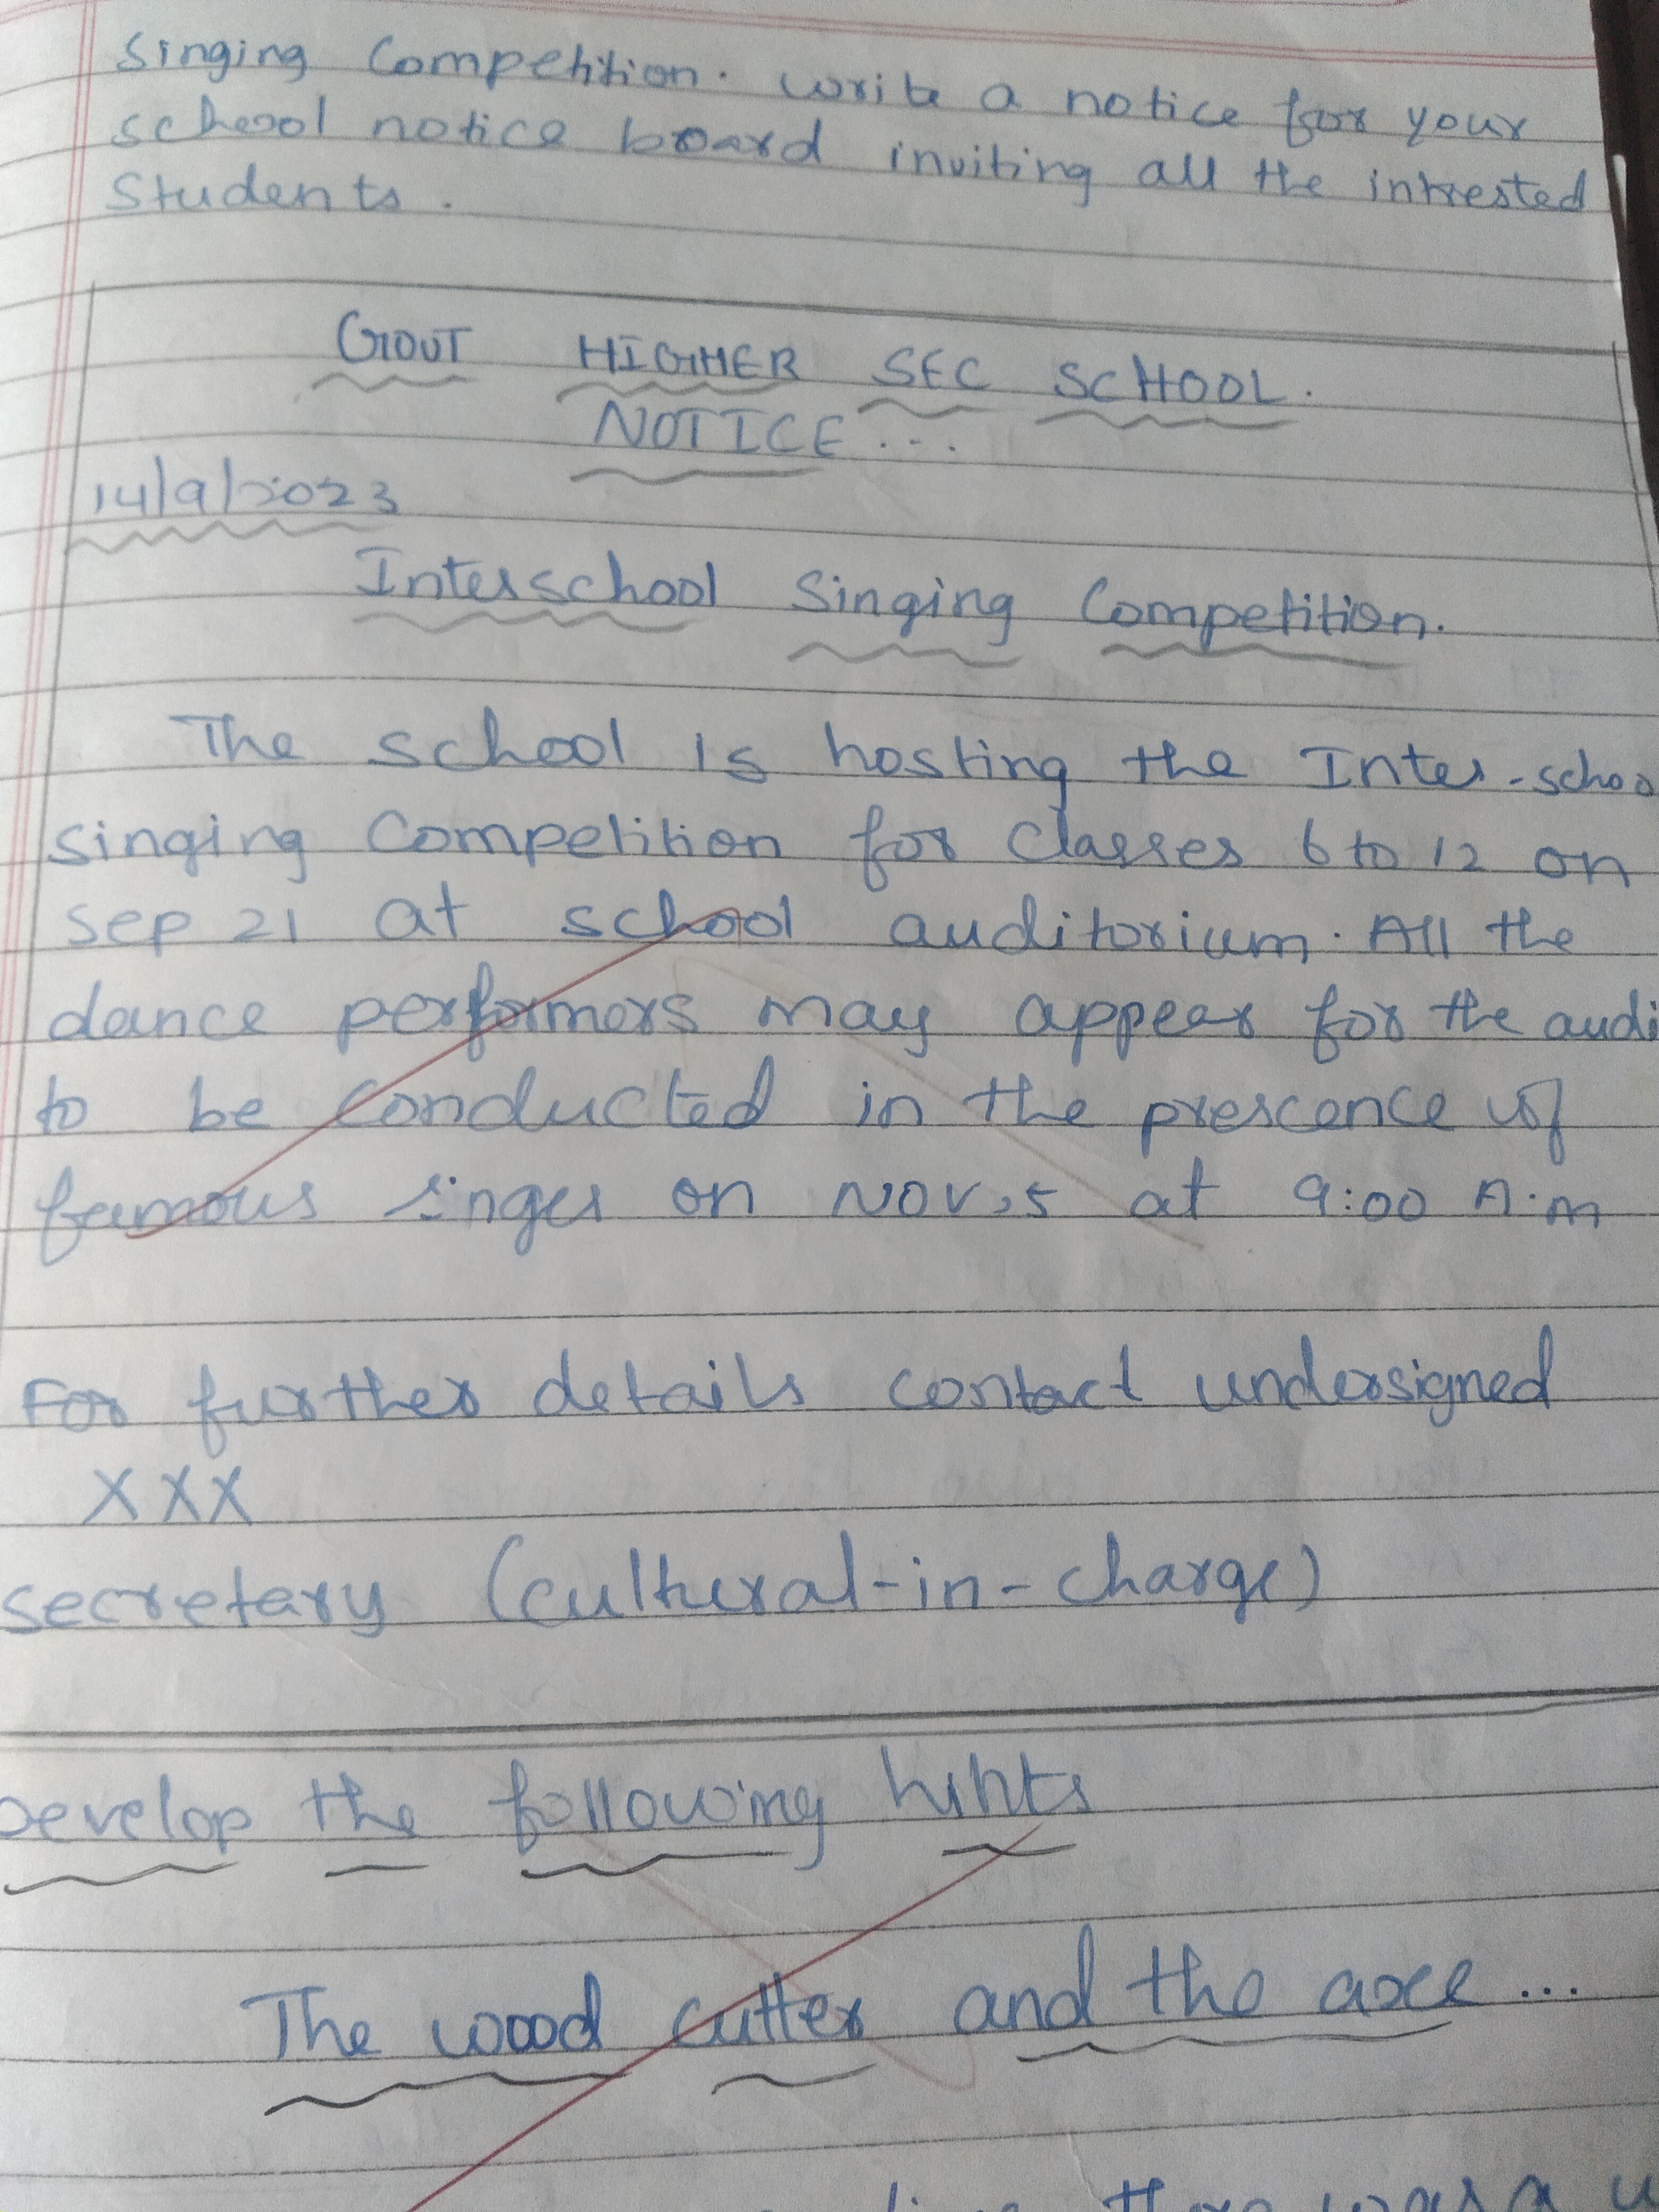 Singing Competition. write a notice for your
school notice board inviting all the intrested
Students.
GOVT HIGHER SEC SCHOOL.
NOTICE...
14/9/2023
Interschool Singing Competition.
The school is hosting the Inter-schoo
singing Competition for classes 6 to 12 on
sep 21 at school auditorium. All the
dance performers may appear for the audi
to be conducted in the prescence of
famous singer on Nov,5 at 9:00 A.m
For further details contact undersigned
XXX
secretary (cultural-in-charge)
Develop the following hints
The wood cutter and the axe...
there was a